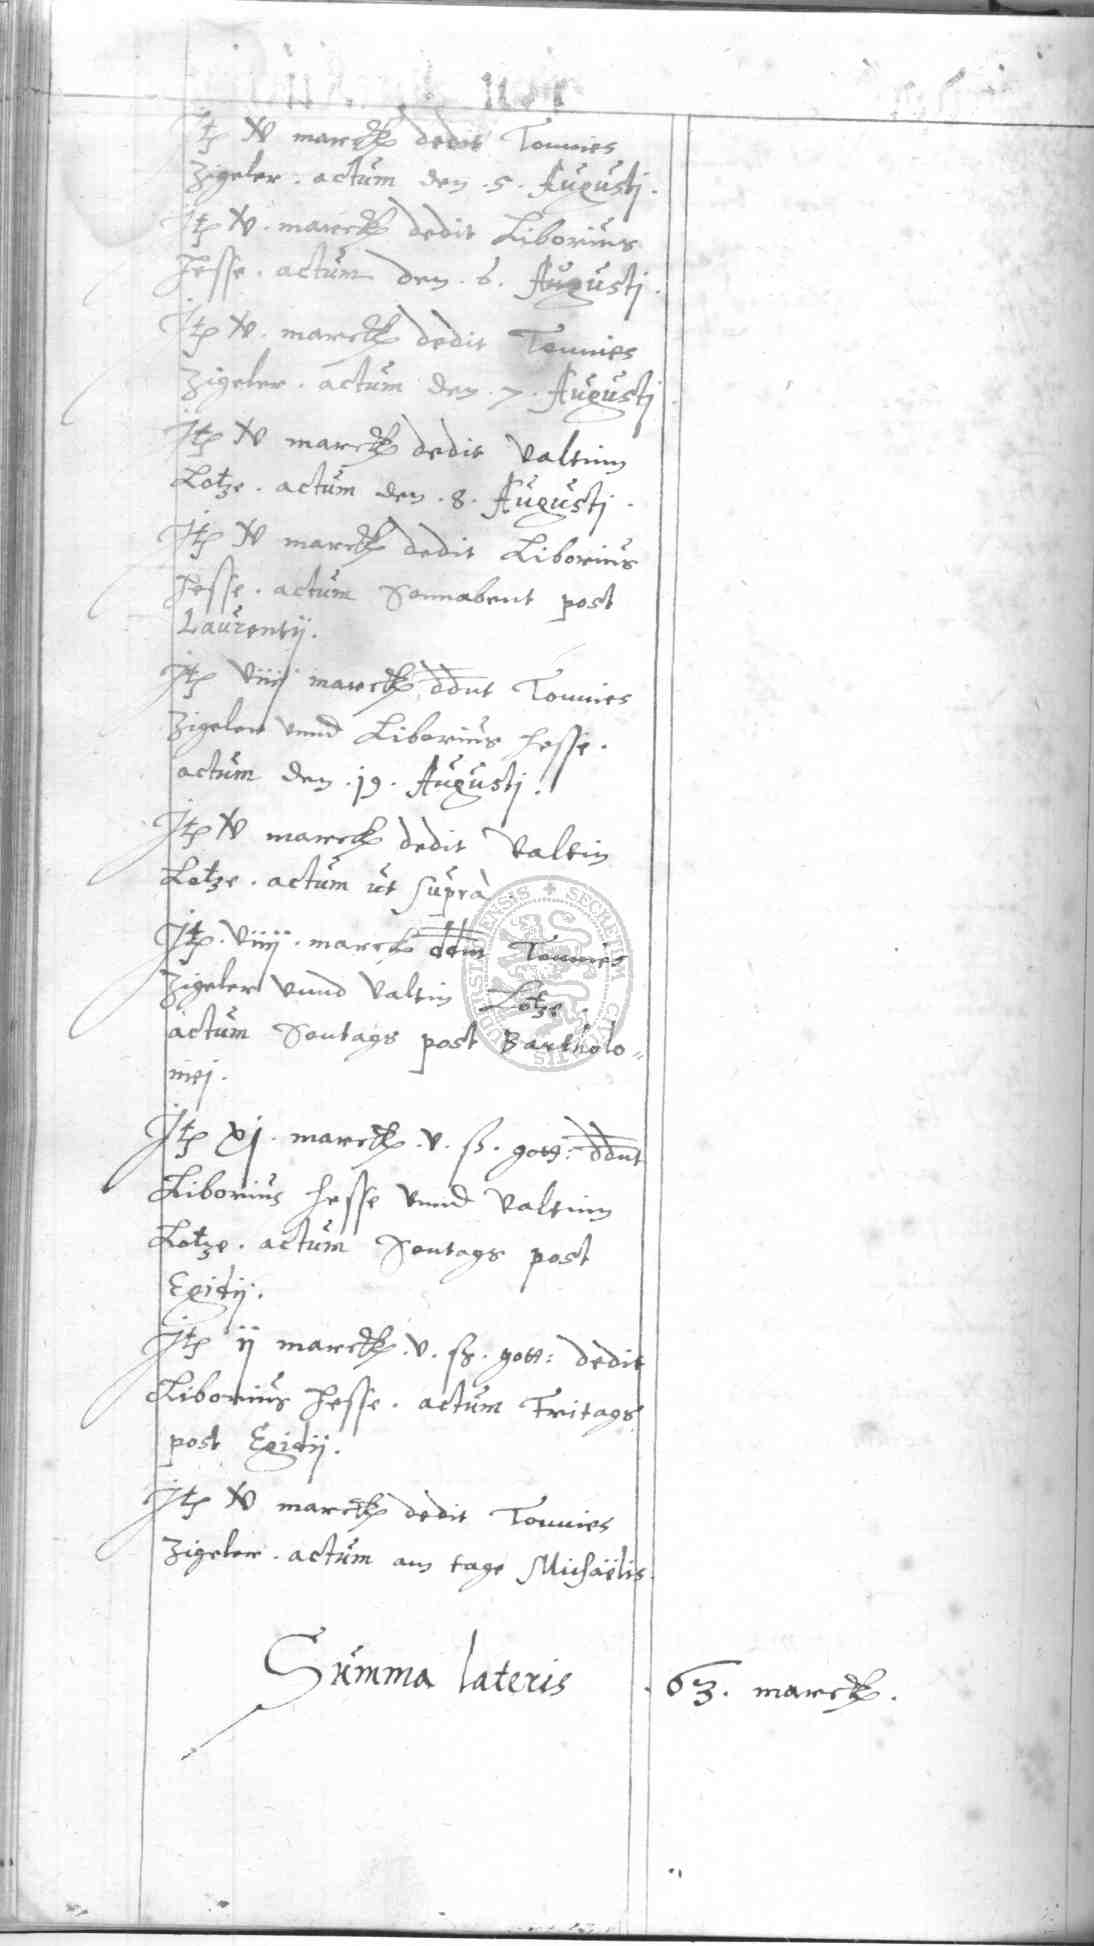 Jtem v marck dedit Tonnies
Zigeler . actum den . 5 . Augustj .
Jtem v . marck dedit Liborius
Hesse . actum den . 6 . Augustj .
Jtem v . marck dedit Tonnies
Zigeler . actum den . 7 . Augustj .
Jtem v marck dedit Valtinn
Lotze . actum den . 8 . Augustj .
Jtem v marck dedit Liborius
Hesse . actum Sonnabent post
Laurentij .
Jtem viiij marck ddnt Tonnies
Zigeler vnnd Liborius Hesse .
actum den . 19 . Augustj .
Jtem v marck dedit Valtin
Lotze . actum ut supra .
Jtem . viiij . marck ddnt Tonnies
Zigeler vnnd Valtin Lotze .
actum Sontags post Bartholo=
mej .
Jtem xj . marck . v . ß . gott : ddnt
Liborius Hesse vnnd Valtinn
Lotze . actum Sontags post
Egidij .
Jtem ij marck . v . ß . gott : dedit
Liborius Hesse . actum Fritags
post Egidij .
Jtem v marck dedit Tonnies
Zigeler . actum am tage Michaëlis .
Summa lateris . 63 . marck .
SECRETUM CIVITATIS